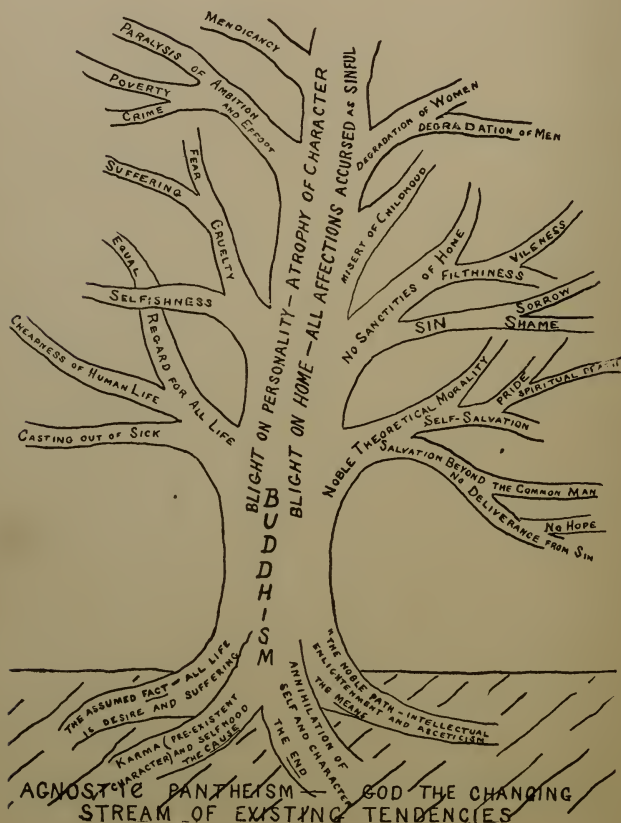 MENDICANCY
PARALYSIS OF AMBITION
AND EFFORT
POVERTY
CRIME
FEAR
SUFFERING
CRUELTY
EQUAL
REGARD FOR ALL LIFE
SELFISHNESS
CHEAPNESS OF HUMAN LIFE
CASTING OUT OF SICK
BLIGHT ON PERSONALITY — ATROPHY OF CHARACTER
BLIGHT ON HOME — ALL AFFECTIONS ACCURSED AS SINFUL
DEGRADATION OF WOMEN
DEGRADATION OF MEN
MISERY OF CHILDHOOD
NO SANCTITIES OF HOME
FILTHINESS
VILENESS
SORROW
SIN SHAME
NOBLE THEORETICAL MORALITY
PRIDE
SPIRITUAL
SELF-SALVATION
SALVATION BEYOND THE COMMON MAN
NO DELIVERANCE FROM SIN
NO HOPE
BUDDHISM
THE ASSUMED FACT — ALL LIFE
IS DESIRE AND SUFFERING
KARMA (PRE-EXISTENT
CHARACTER) AND SELFHOOD
THE CAUSE
ANNIHILATION OF
SELF AND CHARACTER
THE END
"THE NOBLE PATH — INTELLECTUAL
ENLIGHTENMENT AND ASCETICISM
THE MEANS
AGNOSTIC PANTHEISM — GOD THE CHANGING
STREAM OF EXISTING TENDENCIES